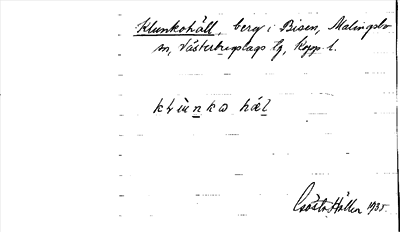 Klunkohäll, berg i Bisen, Malingsbo
sn, Västerbergslags tg, Kopp. l.
klu̇nka hæl
Gösta Hallén 1935.